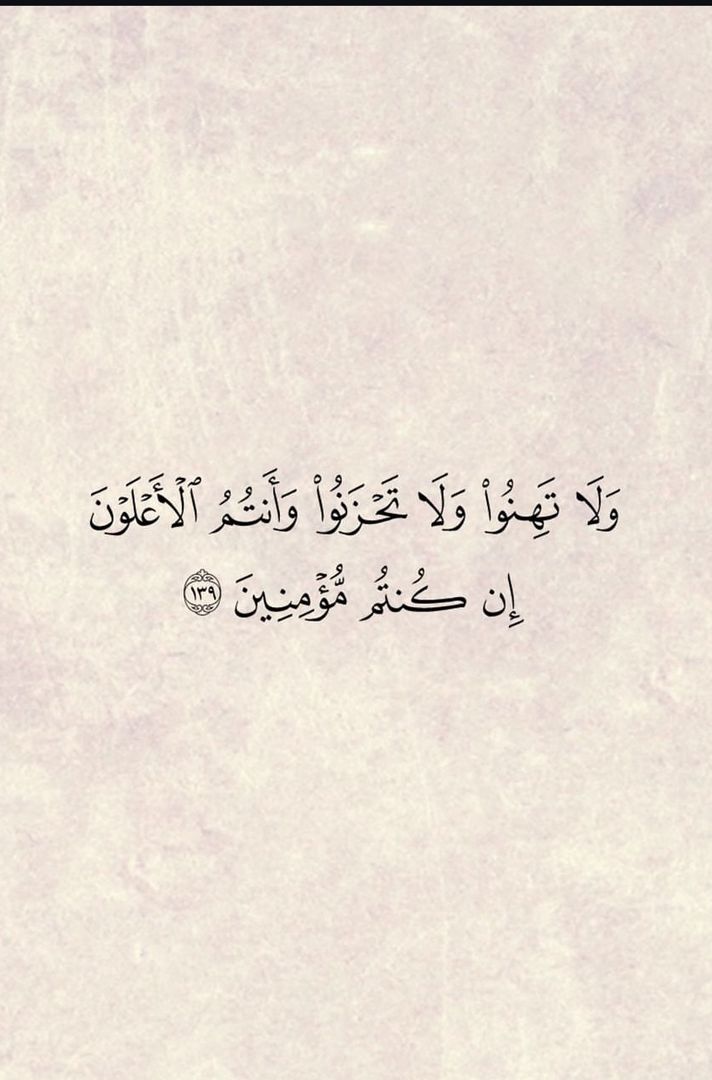 وَلَا تَهِنُوا۟ وَلَا تَحۡزَنُوا۟ وَأَنتُمُ ٱلۡأَعۡلَوۡنَ
إِن كُنتُم مُّؤۡمِنِينَ ١٣٩